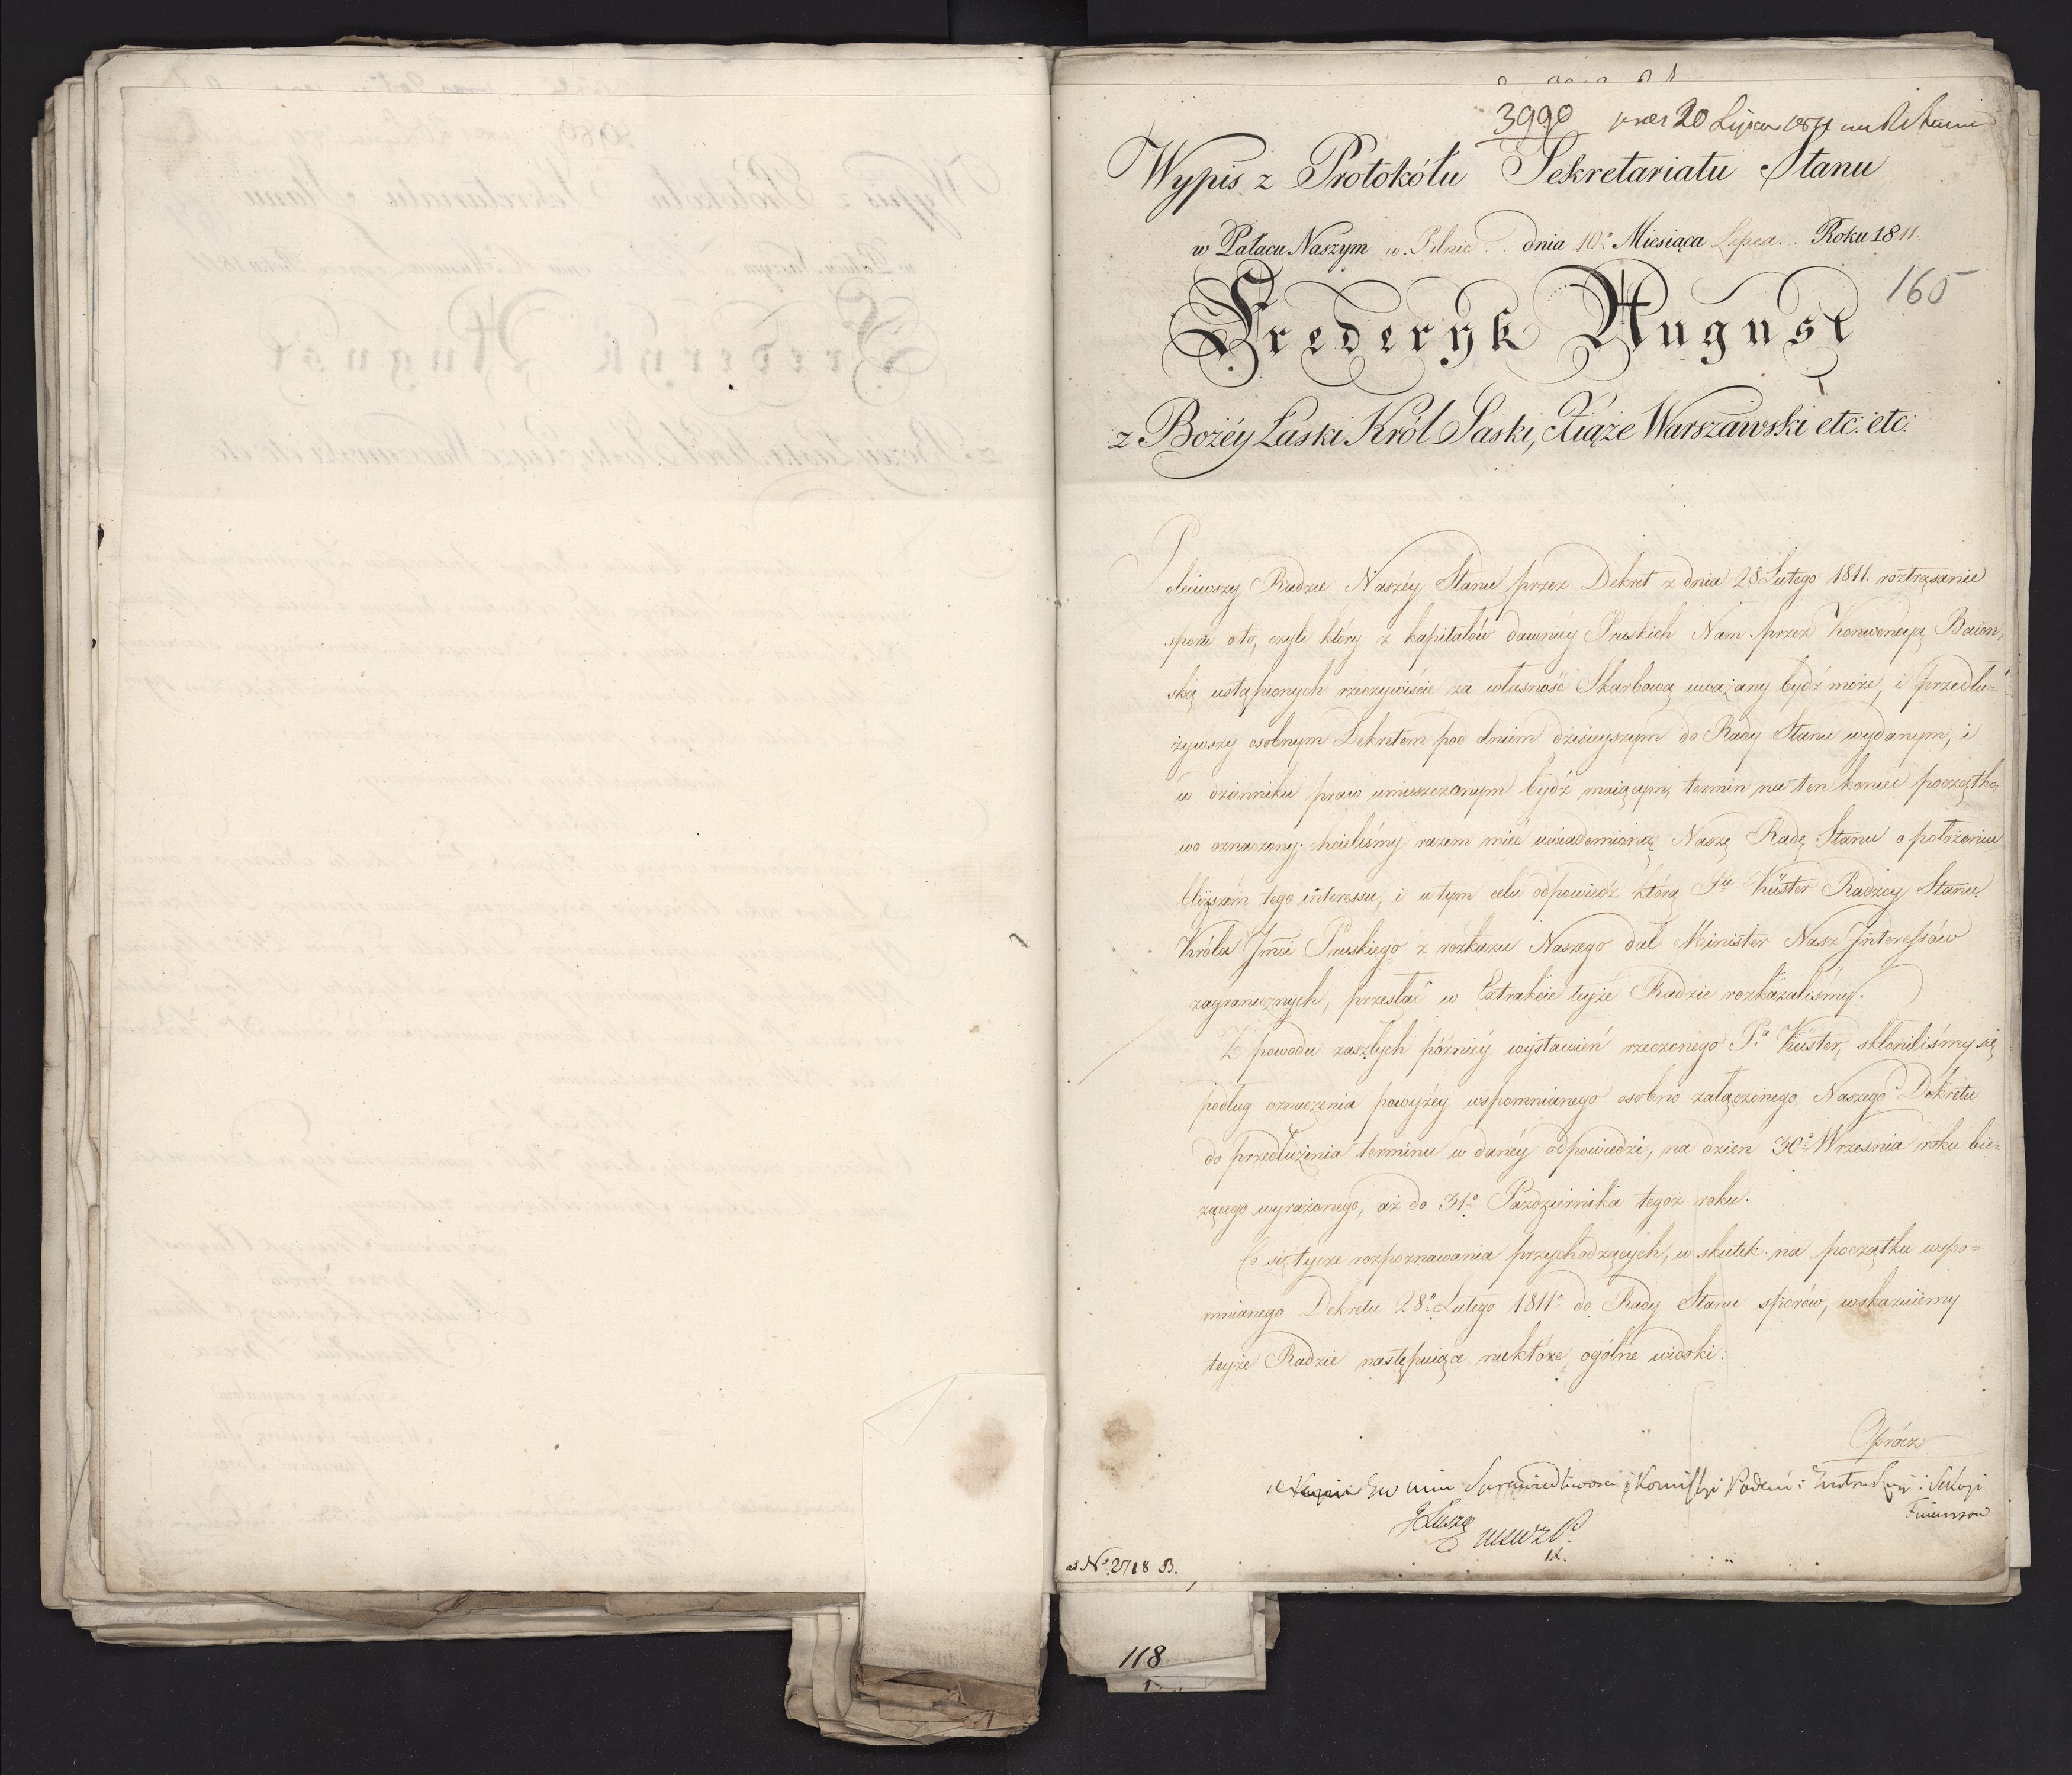 3990 prez 20 Lipca 1811
Wypis z Protokółu Sekretariatu Stanu
w Pałacu Naszym w Pilnic dnia 10° Miesiąca Lipca Roku 1811.
165
Frederyk August
z Bożéy Łaski Król Saski, Xiąże Warszawski etc: etc:
Poleciwszy Radzie Naszéy Stanu przez Dekret z dnia 28 Lutego 1811. roztrząsanie
sporu o to, czyli który z kapitałów dawniéy Pruskich Nam przez Konwencyą Baion,
ską ustąpionych rzeczywiście za własność Skarbową uważany bydź może, i przedłu=
żywszy osobnym Dekretem pod dniem dzisieyszym do Rady Stanu wydanym, i
w dzienniku praw umieszczonym bydź maiącym, termin na ten koniec początko,
wo oznaczony; chcieliśmy razem mieć uwiadomioną Naszę Radę Stanu o położeniu
bliższém tego interessu, i w tym celu odpowiedź którą Pu Küster Radzcy Stanu
Króla Jmci Pruskiego z rozkazu Naszego dał Minister Nasz Interessów
zagranicznych, przesłać w Extrakcie teyże Radzie rozkazaliśmy.
Z powodu zaszłych późniéy wystawień rzeczonego Pa Küster, skłoniliśmy się
podług oznaczenia powyżéy wspomnianego osobno załączonego Naszego Dekretu
do przedłużenia terminu w danéy odpowiedzi, na dzien 30° Wrzesnia roku bie=
żącego wyrażonego, aż do 31° Pazdziernika tegoż roku.
Co się tycze rozpoznawania przychodzących, w skutek na początku wspo=
mnianego Dekretu 28° Lutego 1811° do Rady Stanu sporów, wskazuiemy
teyże Radzie następuiące niektóre, ogólne widoki:
Oprócz
min Sprawiedliwosci Kommissyi Podań i Instrukcyi i Sekcyi
Finansow
ad No. 2718 B.
118